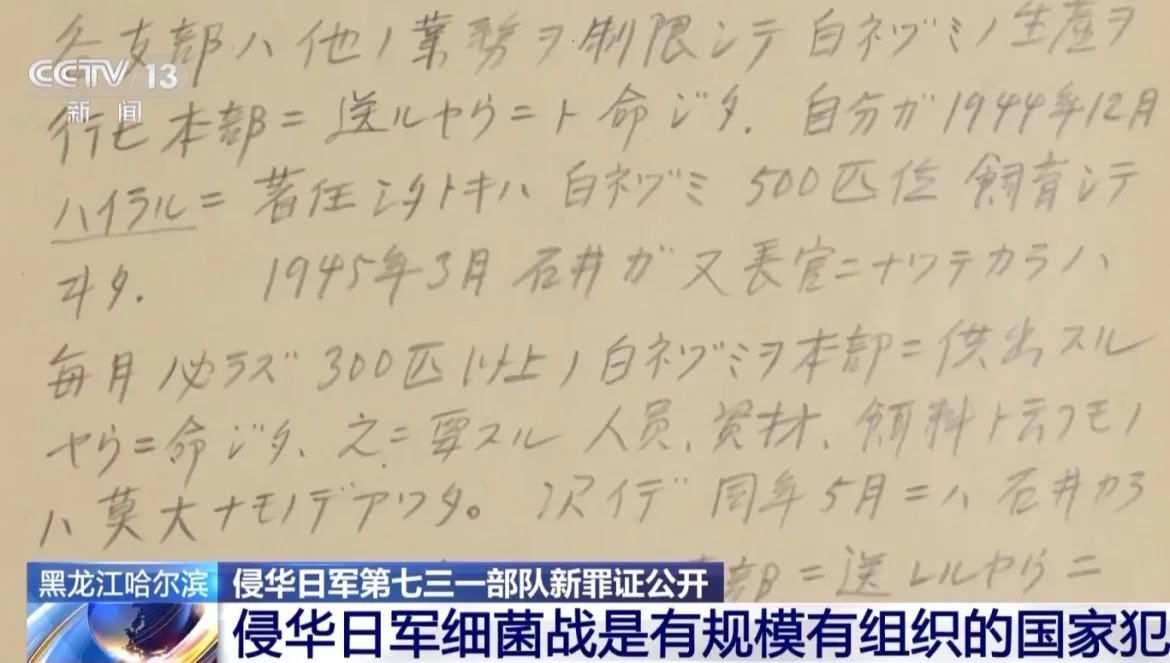 各支部ハ他ノ業務ヲ制限シテ白ネヅミノ生産ヲ
CCTV 13
新闻
行ヒ本部ニ送ルヤウニト命ジタ. 自分ガ1944年12月
ハイラルニ着任シタトキハ白ネヅミ500匹位飼育シテ
ヰタ. 1945年3月石井ガ又長官ニナツテカラハ、
毎月必ラズ300匹以上ノ白ネヅミヲ本部ニ供出スル
ヤウニ命ジタ、之ニ要スル人员、資材、飼料ト云フモノ
ハ莫大ナモノデアツタ。次イデ同年5月ニハ石井カラ
部ニ送レルヤウニ
黑龙江哈尔滨
侵华日军第七三一部队新罪证公开
侵华日军细菌战是有规模有组织的国家犯